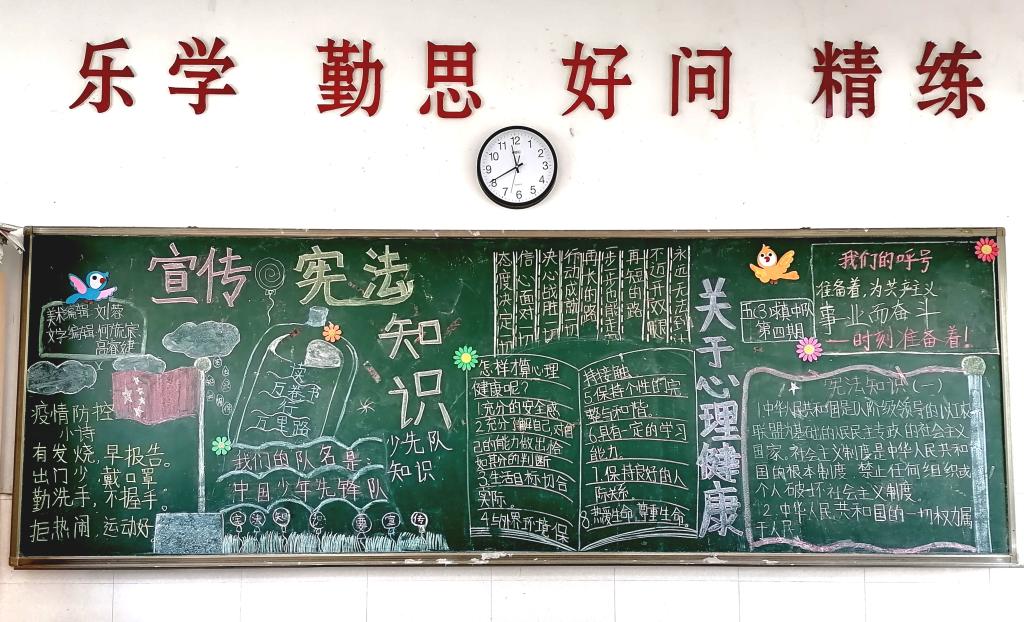 乐学 勤思 好问 精练
12
1
2
3
4
5
6
7
8
9
10
11
宣传宪法
知识
美术编辑 刘蓉
文字编辑
疫情防控
小诗
有发烧,早报告。
出门少,戴口罩。
勤洗手,不握手。
拒热闹,运动好
读
万卷书
行
万里路
少先队
知识
我们的队名是:
中国少年先锋队
态度决定一切
信心面对一切
决心战胜一切
行动成就一切
再长的路
一步步也能走完
再短的路
不迈开双脚
永远无法到
怎样才算心理
健康呢?
1.充分的安全感
2.充分了解自己,对自
己的能力做出恰
如其分的判断
3.生活目标切合
实际。
4.与外界环境保
持接触。
5.保持个性的完
整与和谐。
6.具有一定的学习
能力。
7.保持良好的人
际关系。
8.热爱生命,尊重生命。
关于心理健康
第四期
我们的呼号
准备着,为共产主义
事业而奋斗
—时刻准备着!
宪法知识(一)
1.中华人民共和国是以工人阶级领导的以工农
联盟为基础的人民民主专政的社会主义
国家。社会主义制度是中华人民共和
国的根本制度。禁止任何组织或
个人破坏社会主义制度。
2.中华人民共和国的一切权力属
于人民